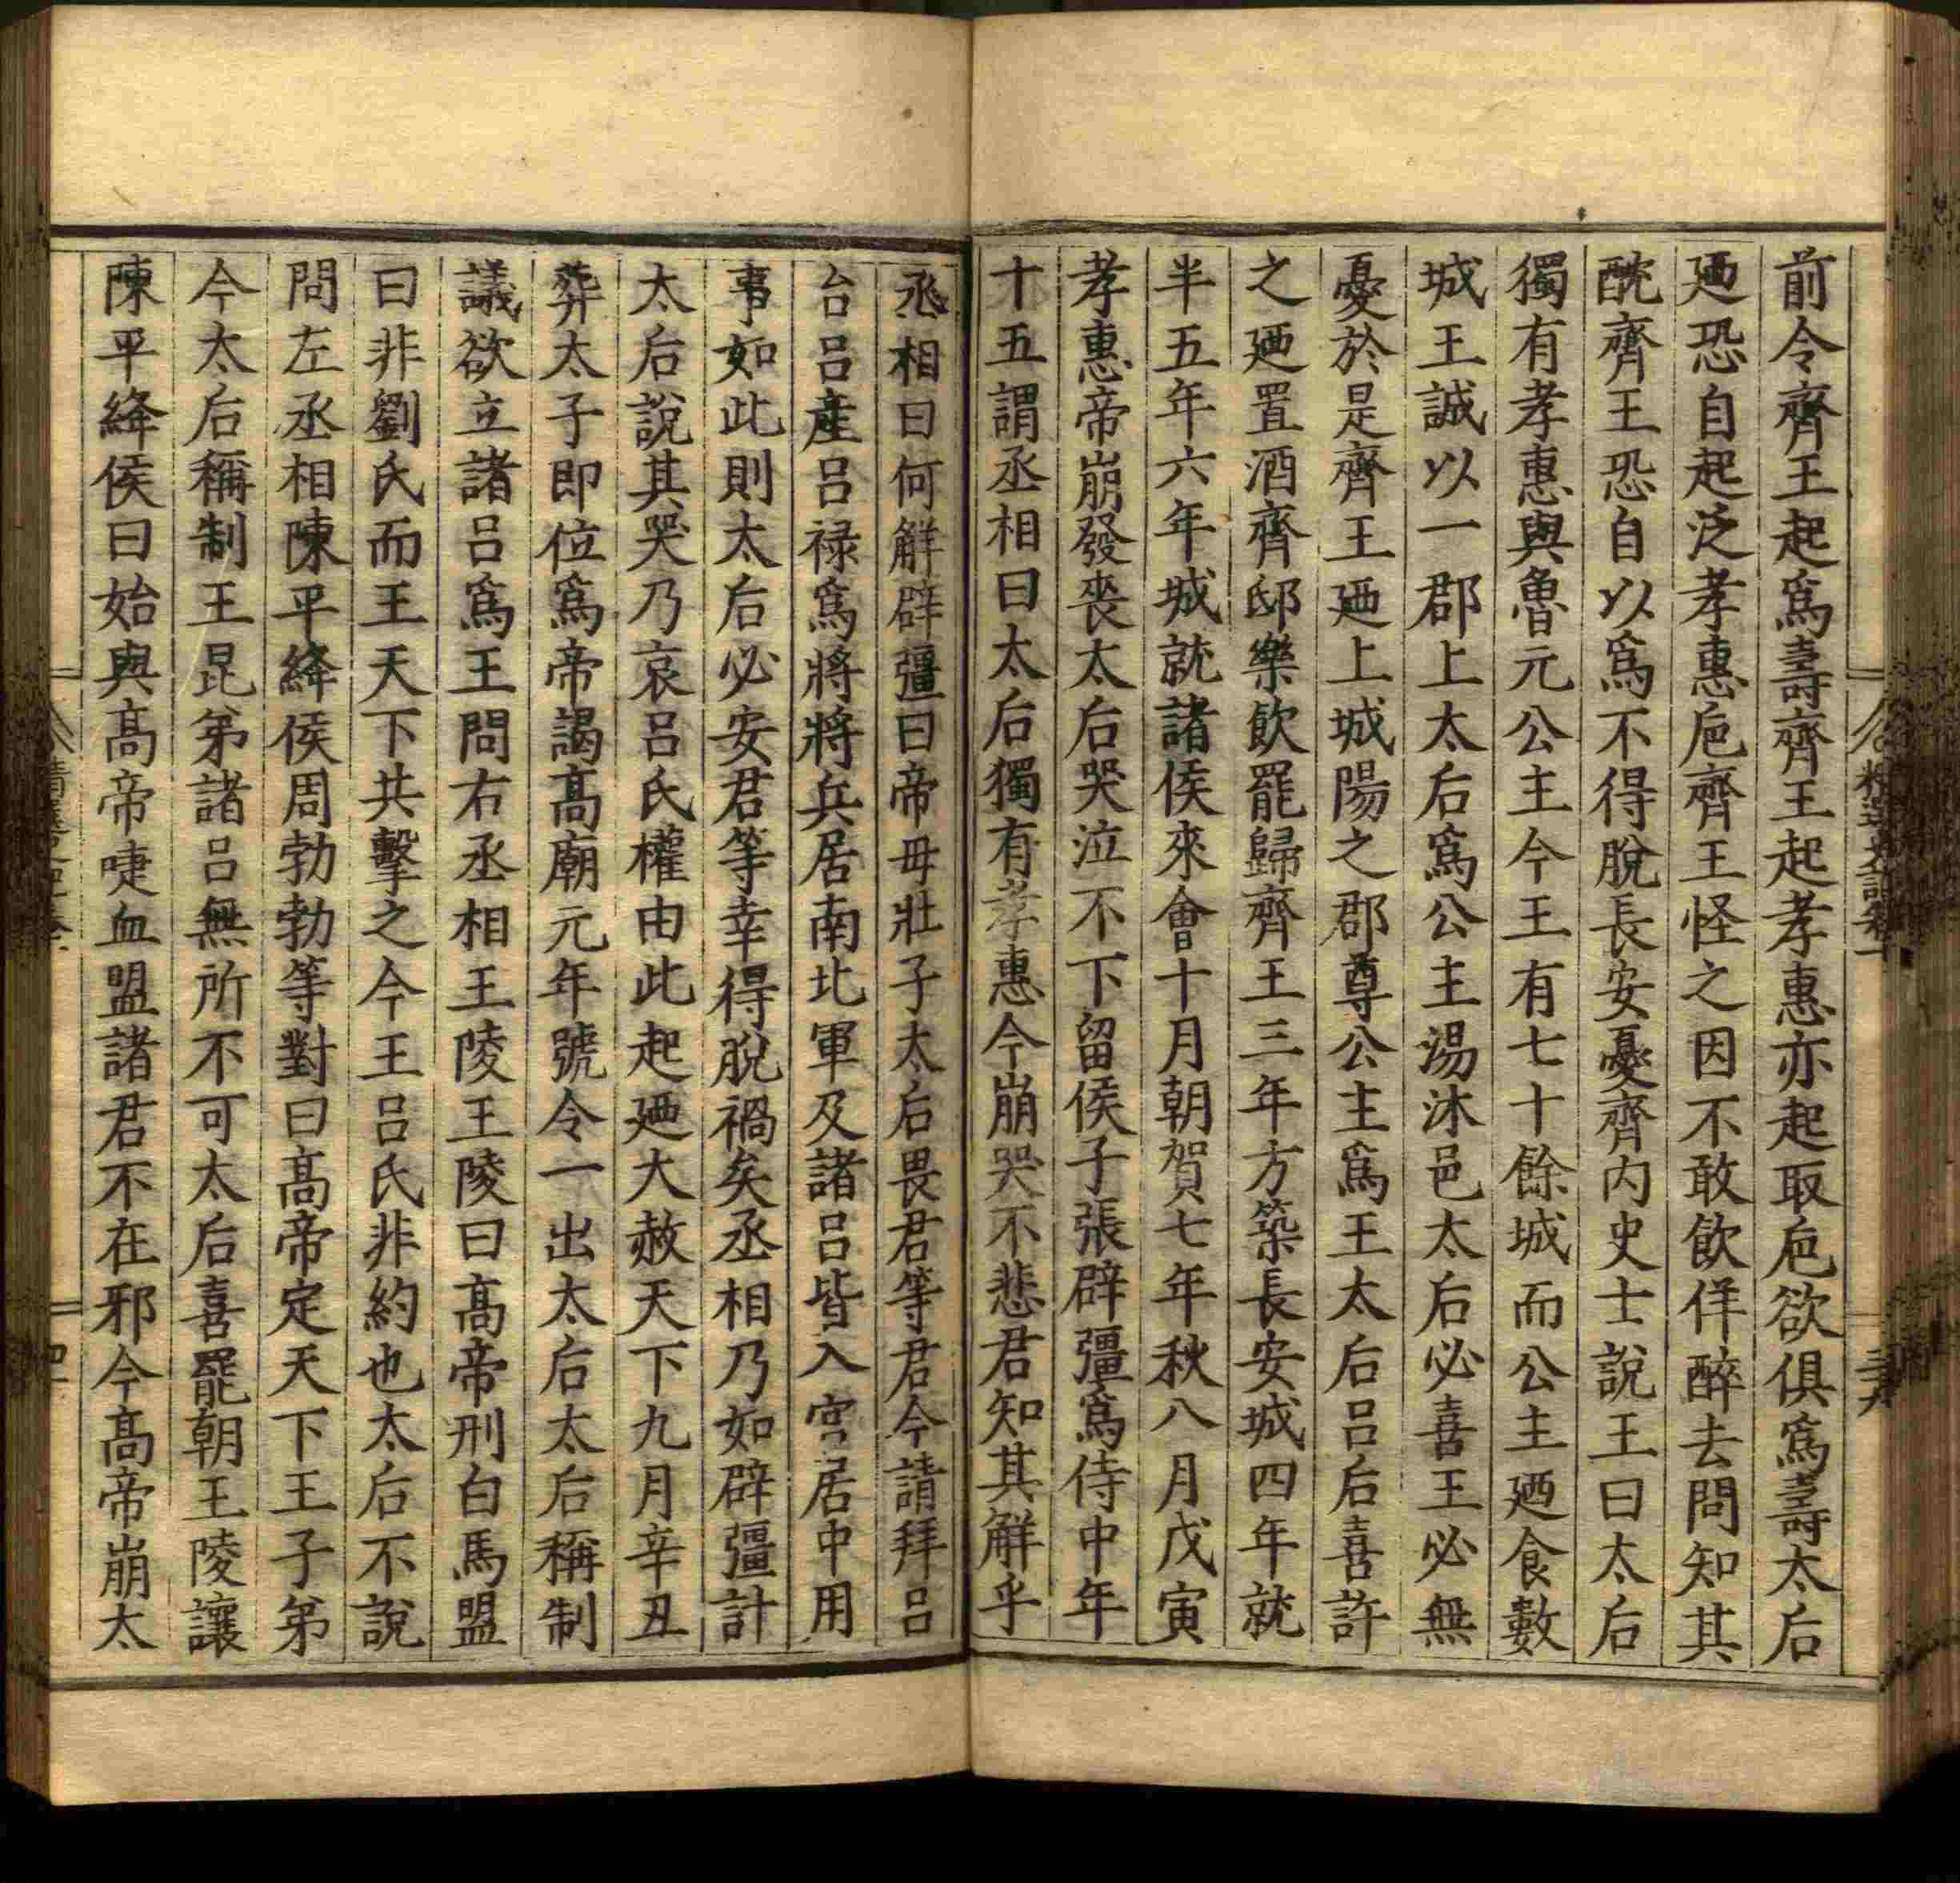 前令齊王起爲壽齊王起孝惠亦起取巵欲俱爲壽太后
廼恐自起泛孝惠巵齊王怪之因不敢飲佯醉去問知其
酖齊王恐自以爲不得脫長安憂齊內史士說王曰太后
獨有孝惠與魯元公主今王有七十餘城而公主廼食數
城王誠以一郡上太后爲公主湯沐邑太后必喜王必無
憂於是齊王廼上城陽之郡尊公主爲王太后呂后喜許
之廼置酒齊邸樂飲罷歸齊王三年方築長安城四年就
半五年六年城就諸侯來會十月朝賀七年秋八月戊寅
孝惠帝崩發喪太后哭泣不下留侯子張辟彊爲侍中年
十五謂丞相曰太后獨有孝惠今崩哭不悲君知其解乎
丞相曰何解辟彊曰帝毋壯子太后畏君等君今請拜呂
台呂產呂祿爲將將兵居南北軍及諸呂皆入宮居中用
事如此則太后必安君等幸得脫禍矣丞相乃如辟彊計
太后說其哭乃哀呂氏權由此起廼大赦天下九月辛丑
葬太子即位爲帝謁高廟元年號令一出太后太后稱制
議欲立諸呂爲王問右丞相王陵王陵曰高帝刑白馬盟
曰非劉氏而王天下共擊之今王呂氏非約也太后不說
問左丞相陳平絳侯周勃勃等對曰高帝定天下王子弟
今太后稱制王昆弟諸呂無所不可太后喜罷朝王陵讓
陳平絳侯曰始與高帝啑血盟諸君不在邪今高帝崩太